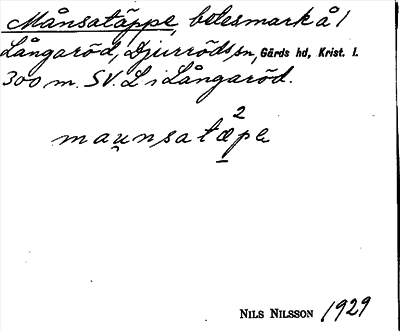 Månsatäppe, betesmark å 1
Långaröd, Djurröds sn, Gärds hd, Krist. l.
300 m. SV. L i Långaröd.
2
mau̯nsatæ̠pə
NILS NILSSON 1929